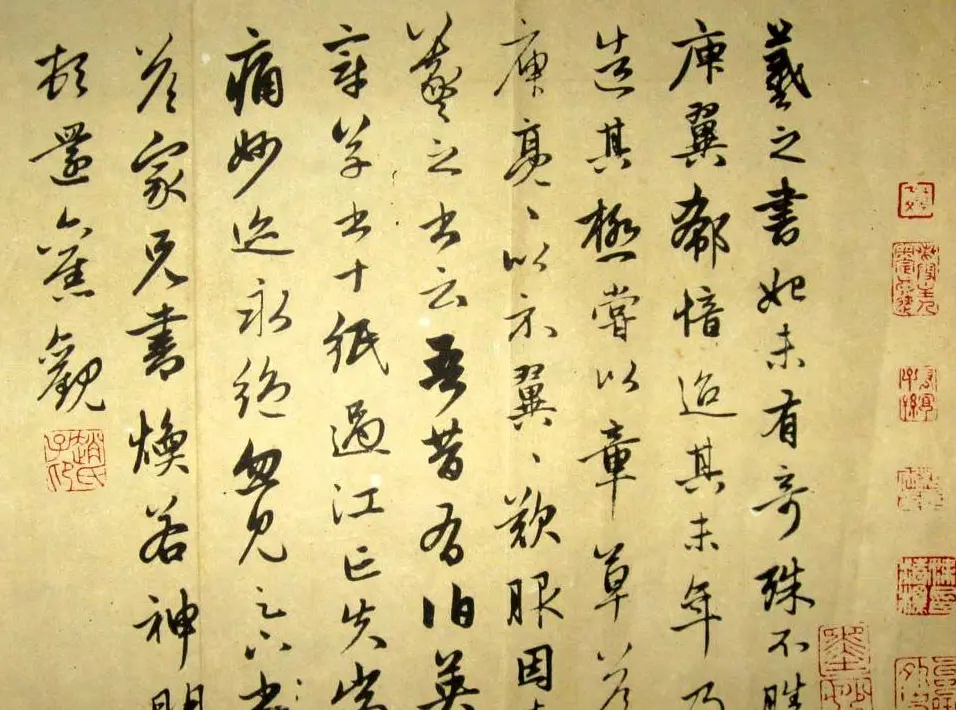 羲之書始未有奇殊不勝
庾翼郗愔迨其末年乃
造其極嘗以章草答
庾亮〻以示翼〻歎服因
羲之書云吾昔有伯英
章草書十紙過江亡失常
痛妙迹永絕忽見足下書
答家兄書煥若神明
頓還舊觀
趙氏子昂